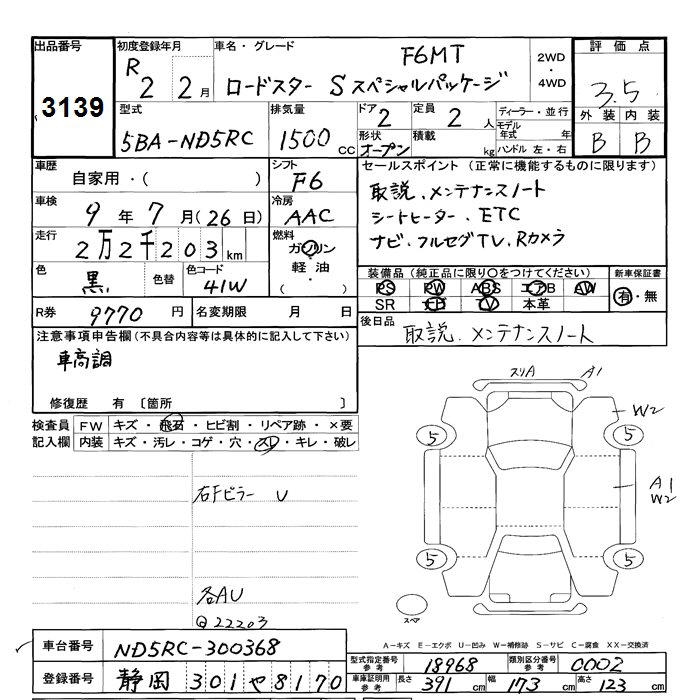 出品番号 初度登録年月 車名・グレード 評価点
3139 R 2 2月 ロードスター Sスペシャルパッケージ F6MT 2WD・4WD 3.5
型式 排気量 ドア 定員 ディーラー・並行 外装 内装
5BA-ND5RC 1500 CC 2 2人 モデル年式 年 B B
形状 積載
オープン kg ハンドル 左・右
車歴 シフト セールスポイント (正常に機能するものに限ります)
自家用・( ) F6 取説、メンテナンスノート
車検 冷房
9年7月(26日) AAC シートヒーター、ETC
走行 燃料
2万2千203km ガソリン ナビ、フルセグTV、Rカメラ
軽油・( )
色 色替 色コード 装備品 (純正品に限り○をつけてください) 新車保証書
黒 41W PS PW ABS エアB AW 有・無
SR TV 本革
R券 9770円 名変期限 月 日 後日品
取説、メンテナンスノート
注意事項申告欄(不具合内容等は具体的に記入して下さい)
車高調
修復歴 有 〔箇所 〕
検査員 FW キズ・飛石・ヒビ割・リペア跡・×要
記入欄 内装 キズ・汚レ・コゲ・穴・スレ・キレ・破レ
スリA A1
W2
5 5
A1
W2
5 5
右Fピラー U
各AU
@22203
スペア
A-キズ E-エクボ U-凹み W-補修跡 S-サビ C-腐食 XX-交換済
車台番号 ND5RC-300368
型式指定番号 参考 18968 類別区分番号 参考 0002
登録番号 静岡 301 や 8170
車庫証明用 参考 長さ 391cm 幅 173cm 高さ 123cm